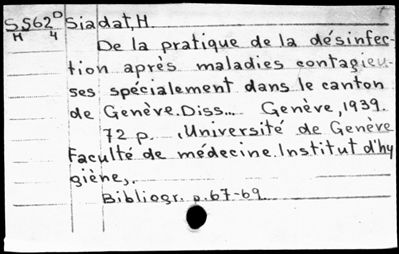 S562D Siadat, H.
H 4
De la pratique de la désinfec-
tion après maladies contagieu-
ses spécialement dans le canton
de Genève. Diss... Genève, 1939.
72 p. , Université de Genève
Faculté de médecine. Institut d'hy
giène,.
Bibliogr. p. 67-69